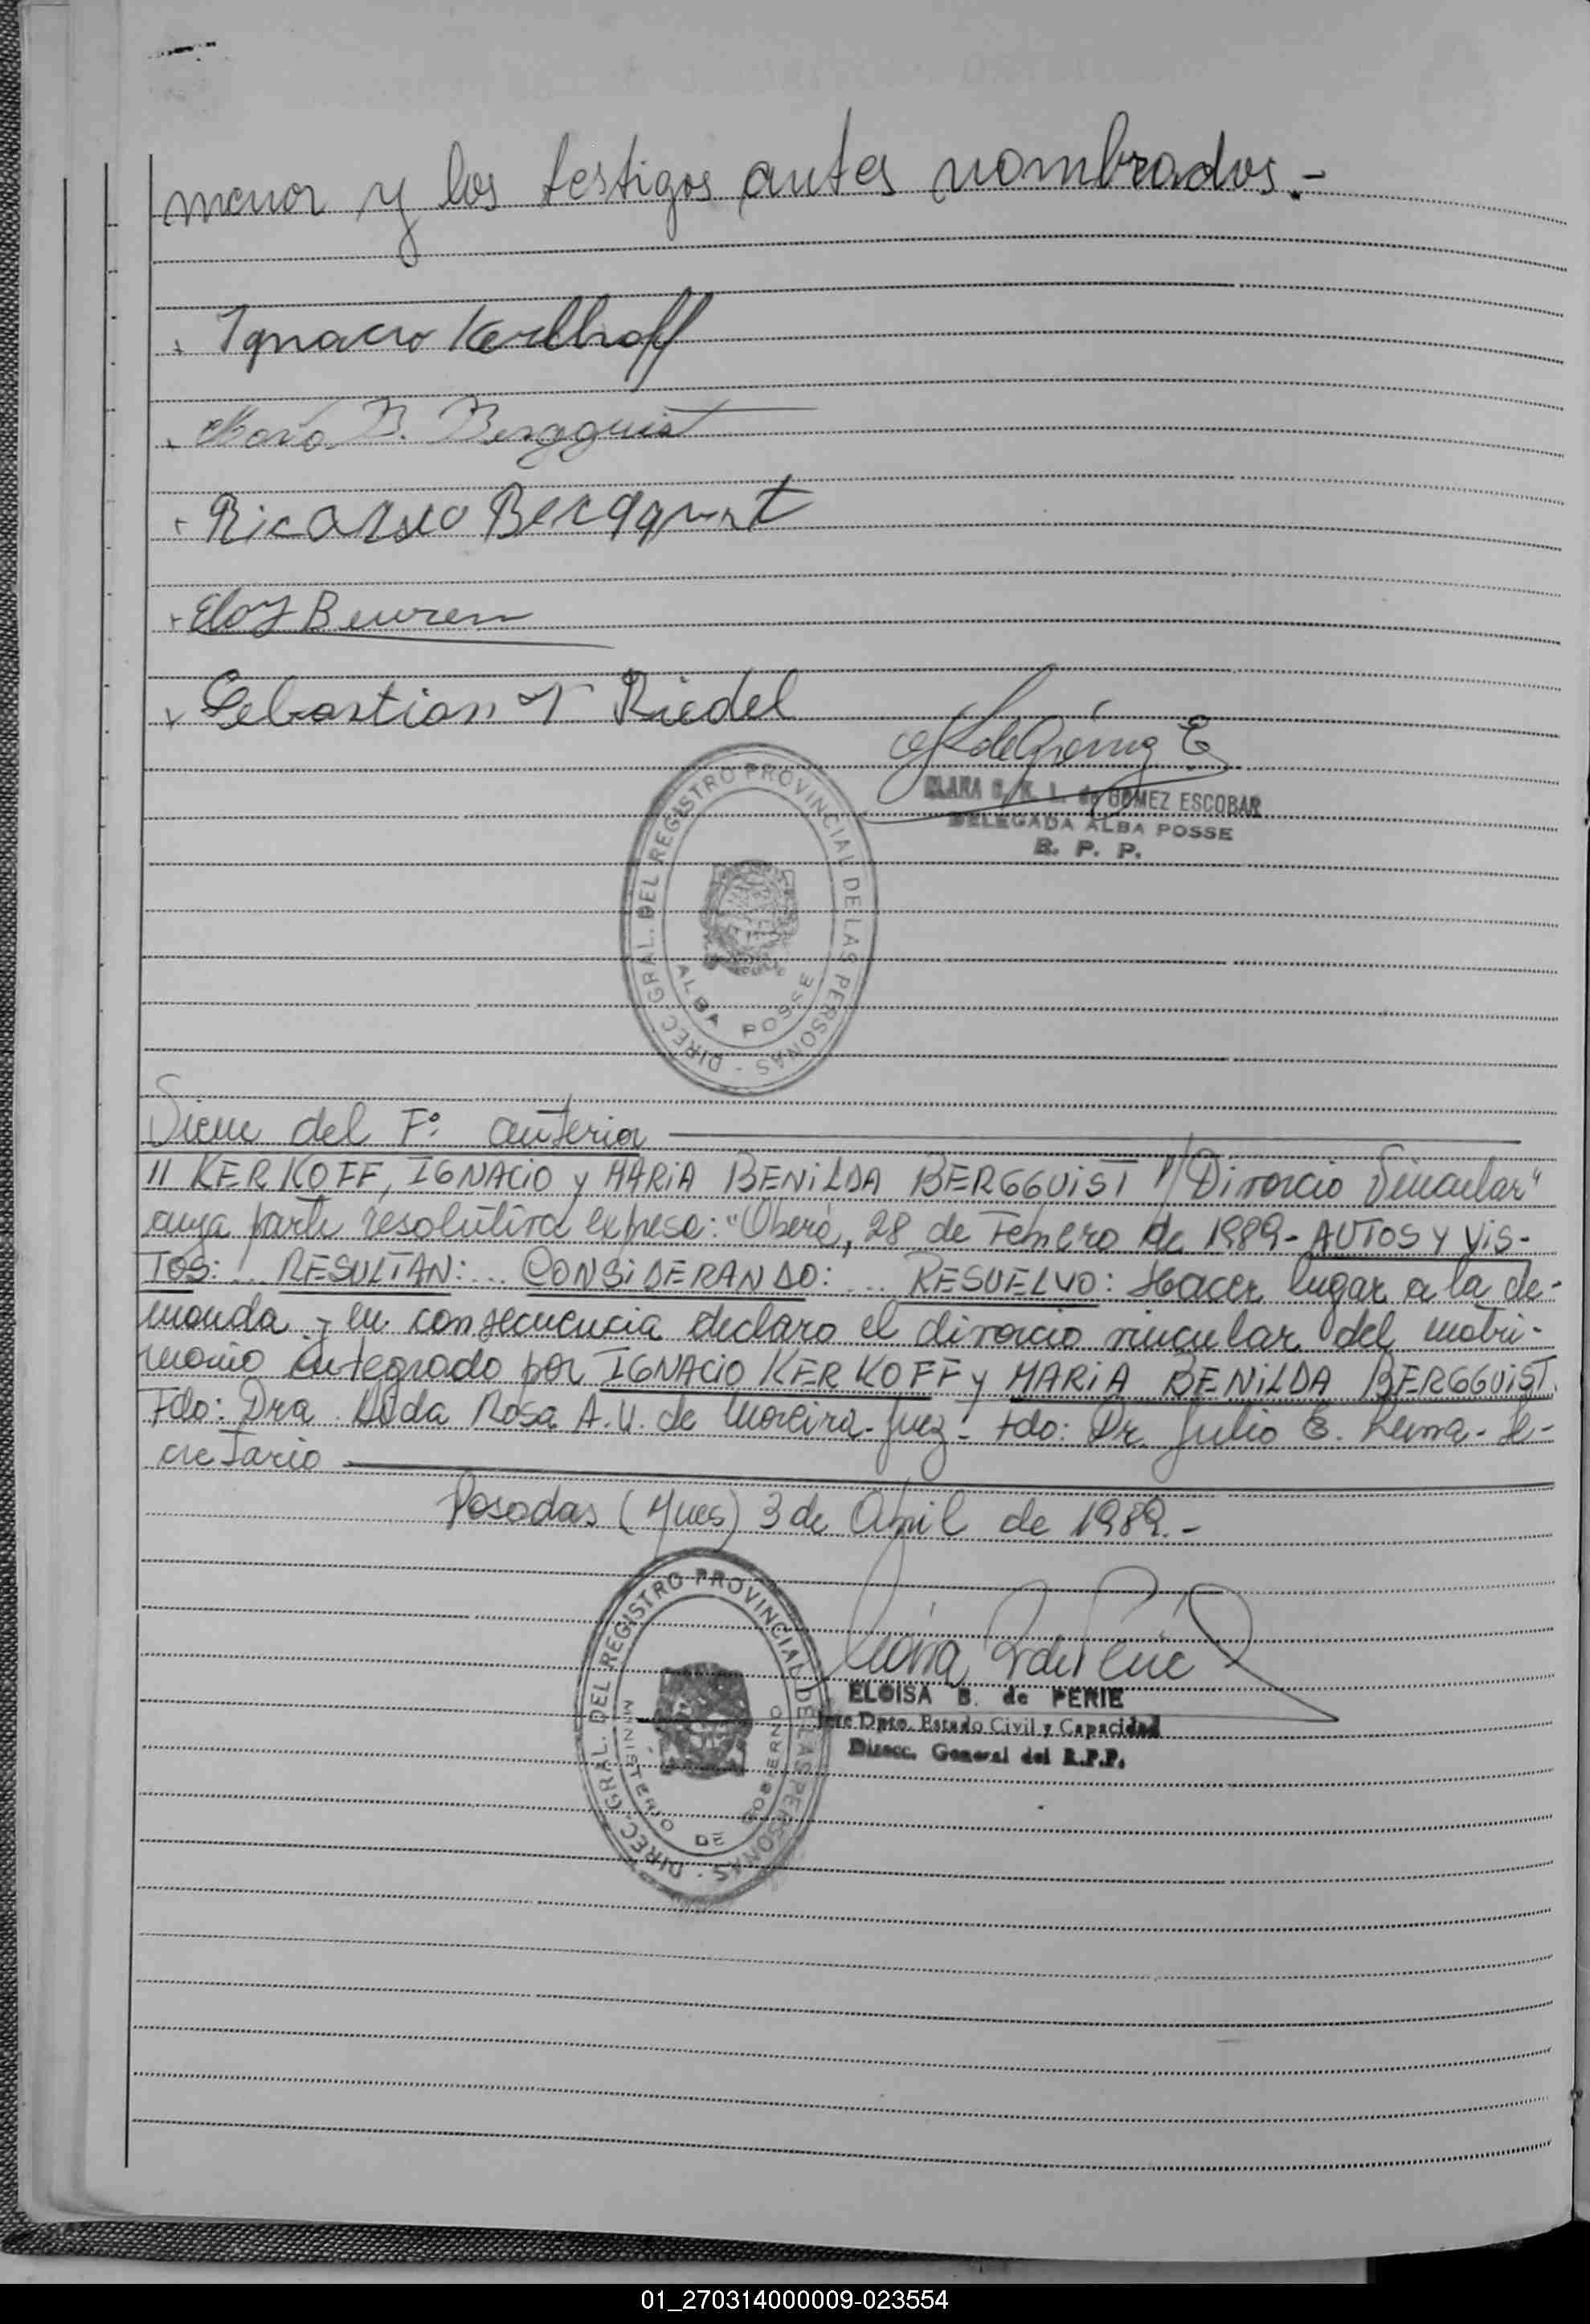 menor y los testigos antes nombrados.-
Ignacio Kerkhoff
Maria B. Bergguist
Ricardo Bergguist
Eloy Beuren
Sebastian Riedel
CLARA de GOMEZ ESCOBAR
DELEGADA ALBA POSSE
R. P. P.
DIREC. GRAL. DEL REGISTRO PROVINCIAL DE LAS PERSONAS -
ALBA POSSE
Viene del Fº anterior
" KERKOFF, IGNACIO y MARIA BENILDA BERGGUIST "/Divorcio Vincular"
cuya parte resolutiva expresa: "Oberá, 28 de Febrero de 1989- AUTOS y VIS-
TOS: ... RESULTAN: ... CONSIDERANDO: ... RESUELVO: Hacer lugar a la de-
manda y en consecuencia declaro el divorcio vincular del matri-
monio integrado por IGNACIO KERKOFF y MARIA BENILDA BERGGUIST.
Fdo: Dra. Rosa A.U. de Moreira - Juez - Fdo: Dr. Julio E. - Se-
cretario
Posadas (Mnes) 3 de Abril de 1989.-
ELOISA B. de PERIE
Jefe Dpto. Estado Civil y Capacidad
Direcc. General del R.P.P.
DIREC. GRAL. DEL REGISTRO PROVINCIAL DE LAS PERSONAS -
MINISTERIO DE GOBIERNO
01_270314000009-023554